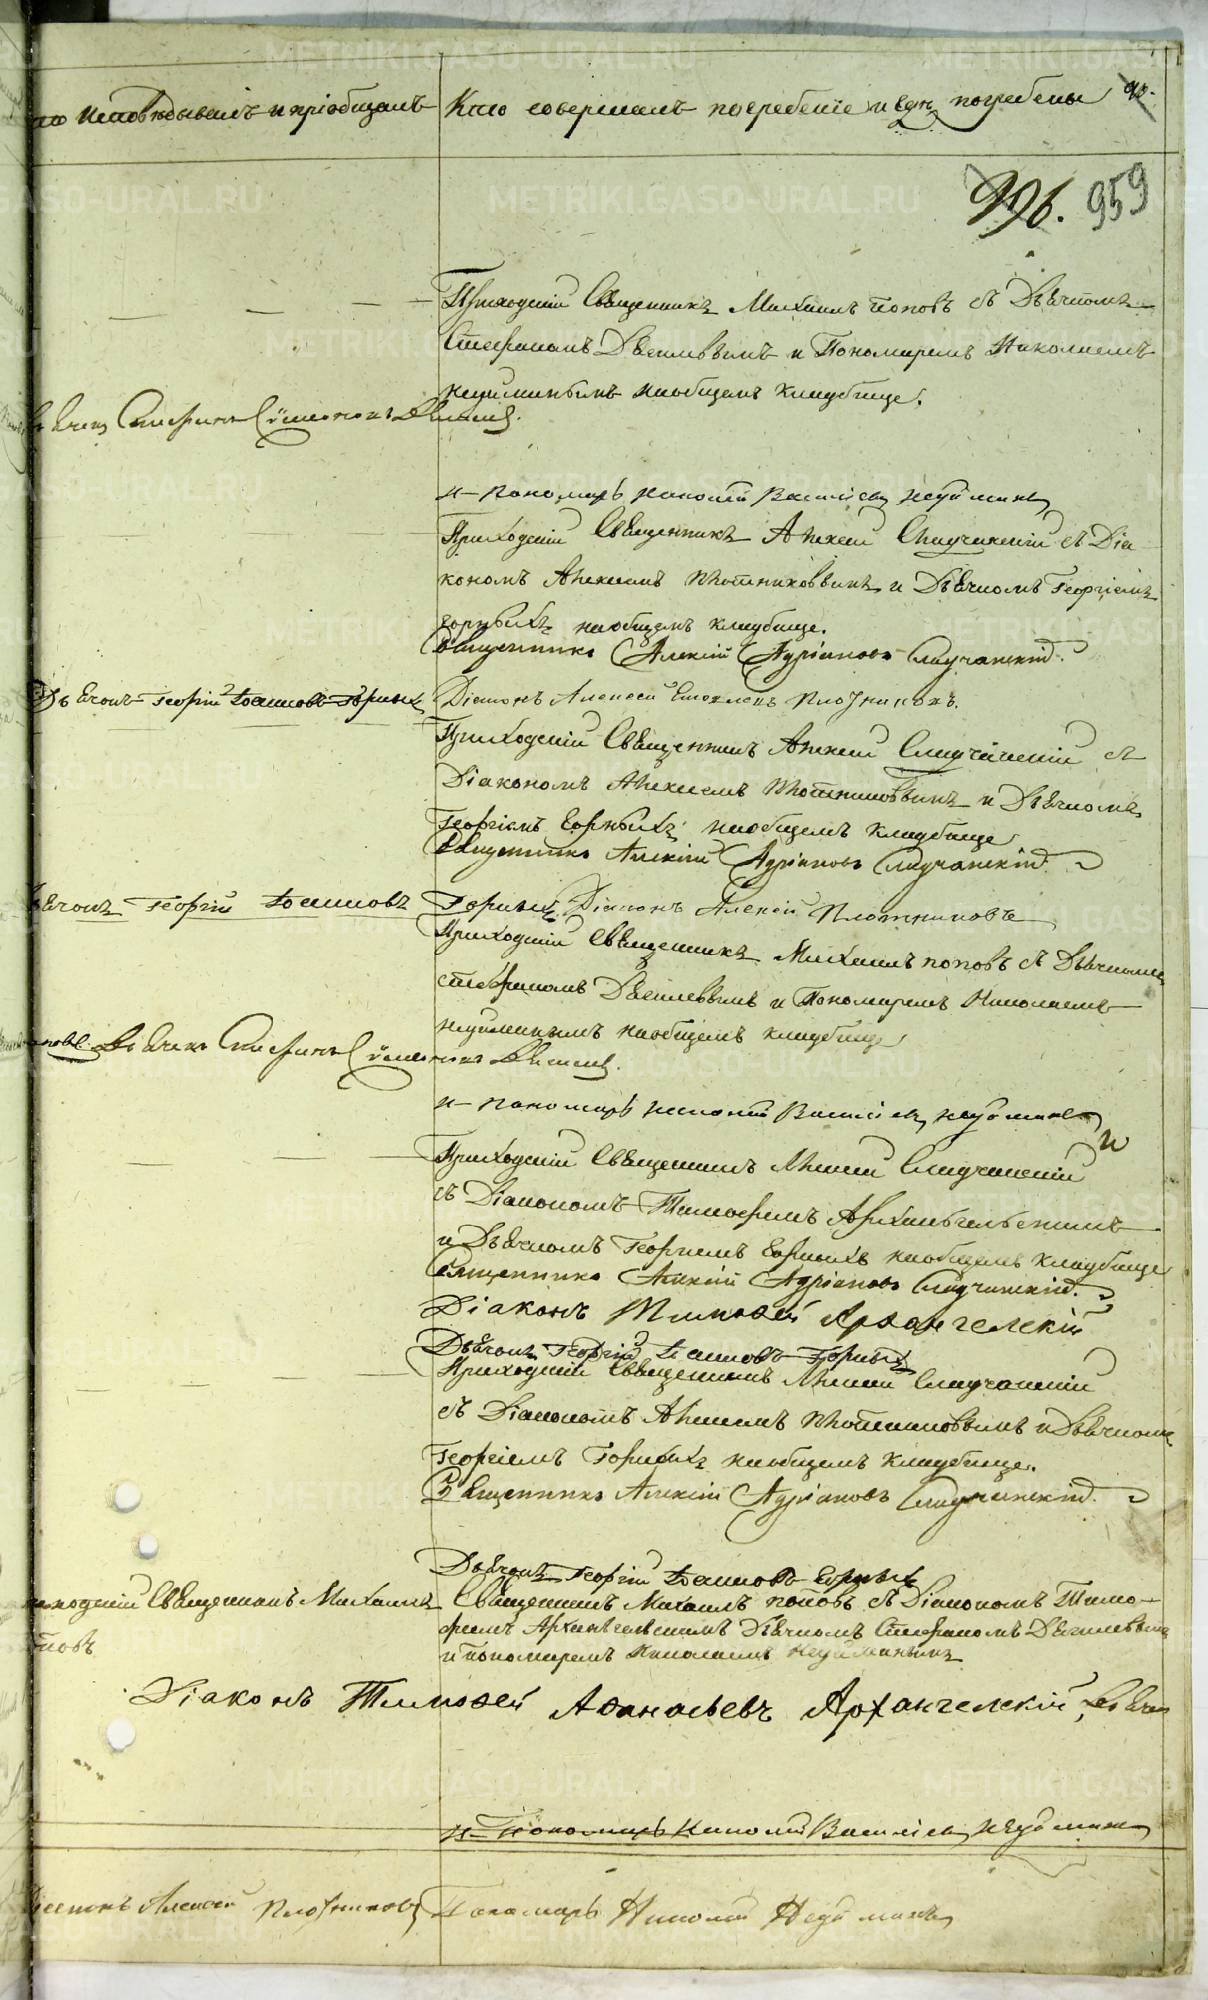 исповѣдывалъ и пріобщалъ
Кто совершалъ погребеніе и гдѣ погребены
996. 959
Приходскій Священникъ Михаилъ Поповъ съ Дьячкомъ
Стефаномъ и Пономаремъ Николаемъ
Неуйминымъ на общемъ кладбище.
Дьячекъ Стефанъ Сѵмеоновъ
и пономарь Николай Василіевъ Неуйминъ
Приходскій Священникъ Алексій Слудчанскій съ Діа-
кономъ Алексіемъ Плотниковымъ и Дьячкомъ Георгіемъ
Горныхъ на общемъ кладбище.
Священникъ Алексій Адріановъ Слудчанскій.
Дьячокъ Георгій Іоанновъ Горныхъ
Діаконъ Алексей Плотниковъ.
Приходскій Священникъ Алексей Слудчанскій съ
Діакономъ Алексеемъ Плотниковымъ и Дьячкомъ
Георгіемъ Горныхъ на общемъ кладбище
Священникъ Алексій Адріановъ Слудчанскій.
Дьячокъ Георгій Іоанновъ Горныхъ. Діаконъ Алексій Плотниковъ
Приходскій Священникъ Михаилъ Поповъ съ Дьячкомъ
Стефаномъ и Пономаремъ Николаемъ
Неуйминымъ на общемъ кладбище
Дьячекъ Стефанъ Сѵмеоновъ
и пономарь Николай Василіевъ Неуйминъ
Приходскій Священникъ Алексій Слудчанскій
съ Діакономъ Тимофеемъ Архангельскимъ
и Дьячкомъ Георгіемъ Горныхъ на общемъ кладбище
Священникъ Алексій Адріановъ Слудчанскій.
Діаконъ Тимоѳей Архангелскій
Дьячокъ Георгій Іоанновъ Горныхъ
Приходскій Священникъ Алексій Слудчанскій
съ Діакономъ Алексеемъ Плотниковымъ и Дьячкомъ
Георгіемъ Горныхъ на общемъ кладбище.
Священникъ Алексій Адріановъ Слудчанскій.
Дьячокъ Георгій Іоанновъ Горныхъ
Священникъ Михаилъ
Священникъ Михаилъ Поповъ съ Діакономъ Тимо-
феемъ Архангельскимъ Дьячкомъ Стефаномъ
и пономаремъ Николаемъ Неуйминымъ
Діаконъ Тимоѳей Аѳанасьевъ Архангелскій, Дьячек
и Пономарь Николай Василіевъ Неуйминъ
Діаконъ Алексей Плотниковъ
Пономарь Николай Неуйминъ
METRIKI.GASO-URAL.RU